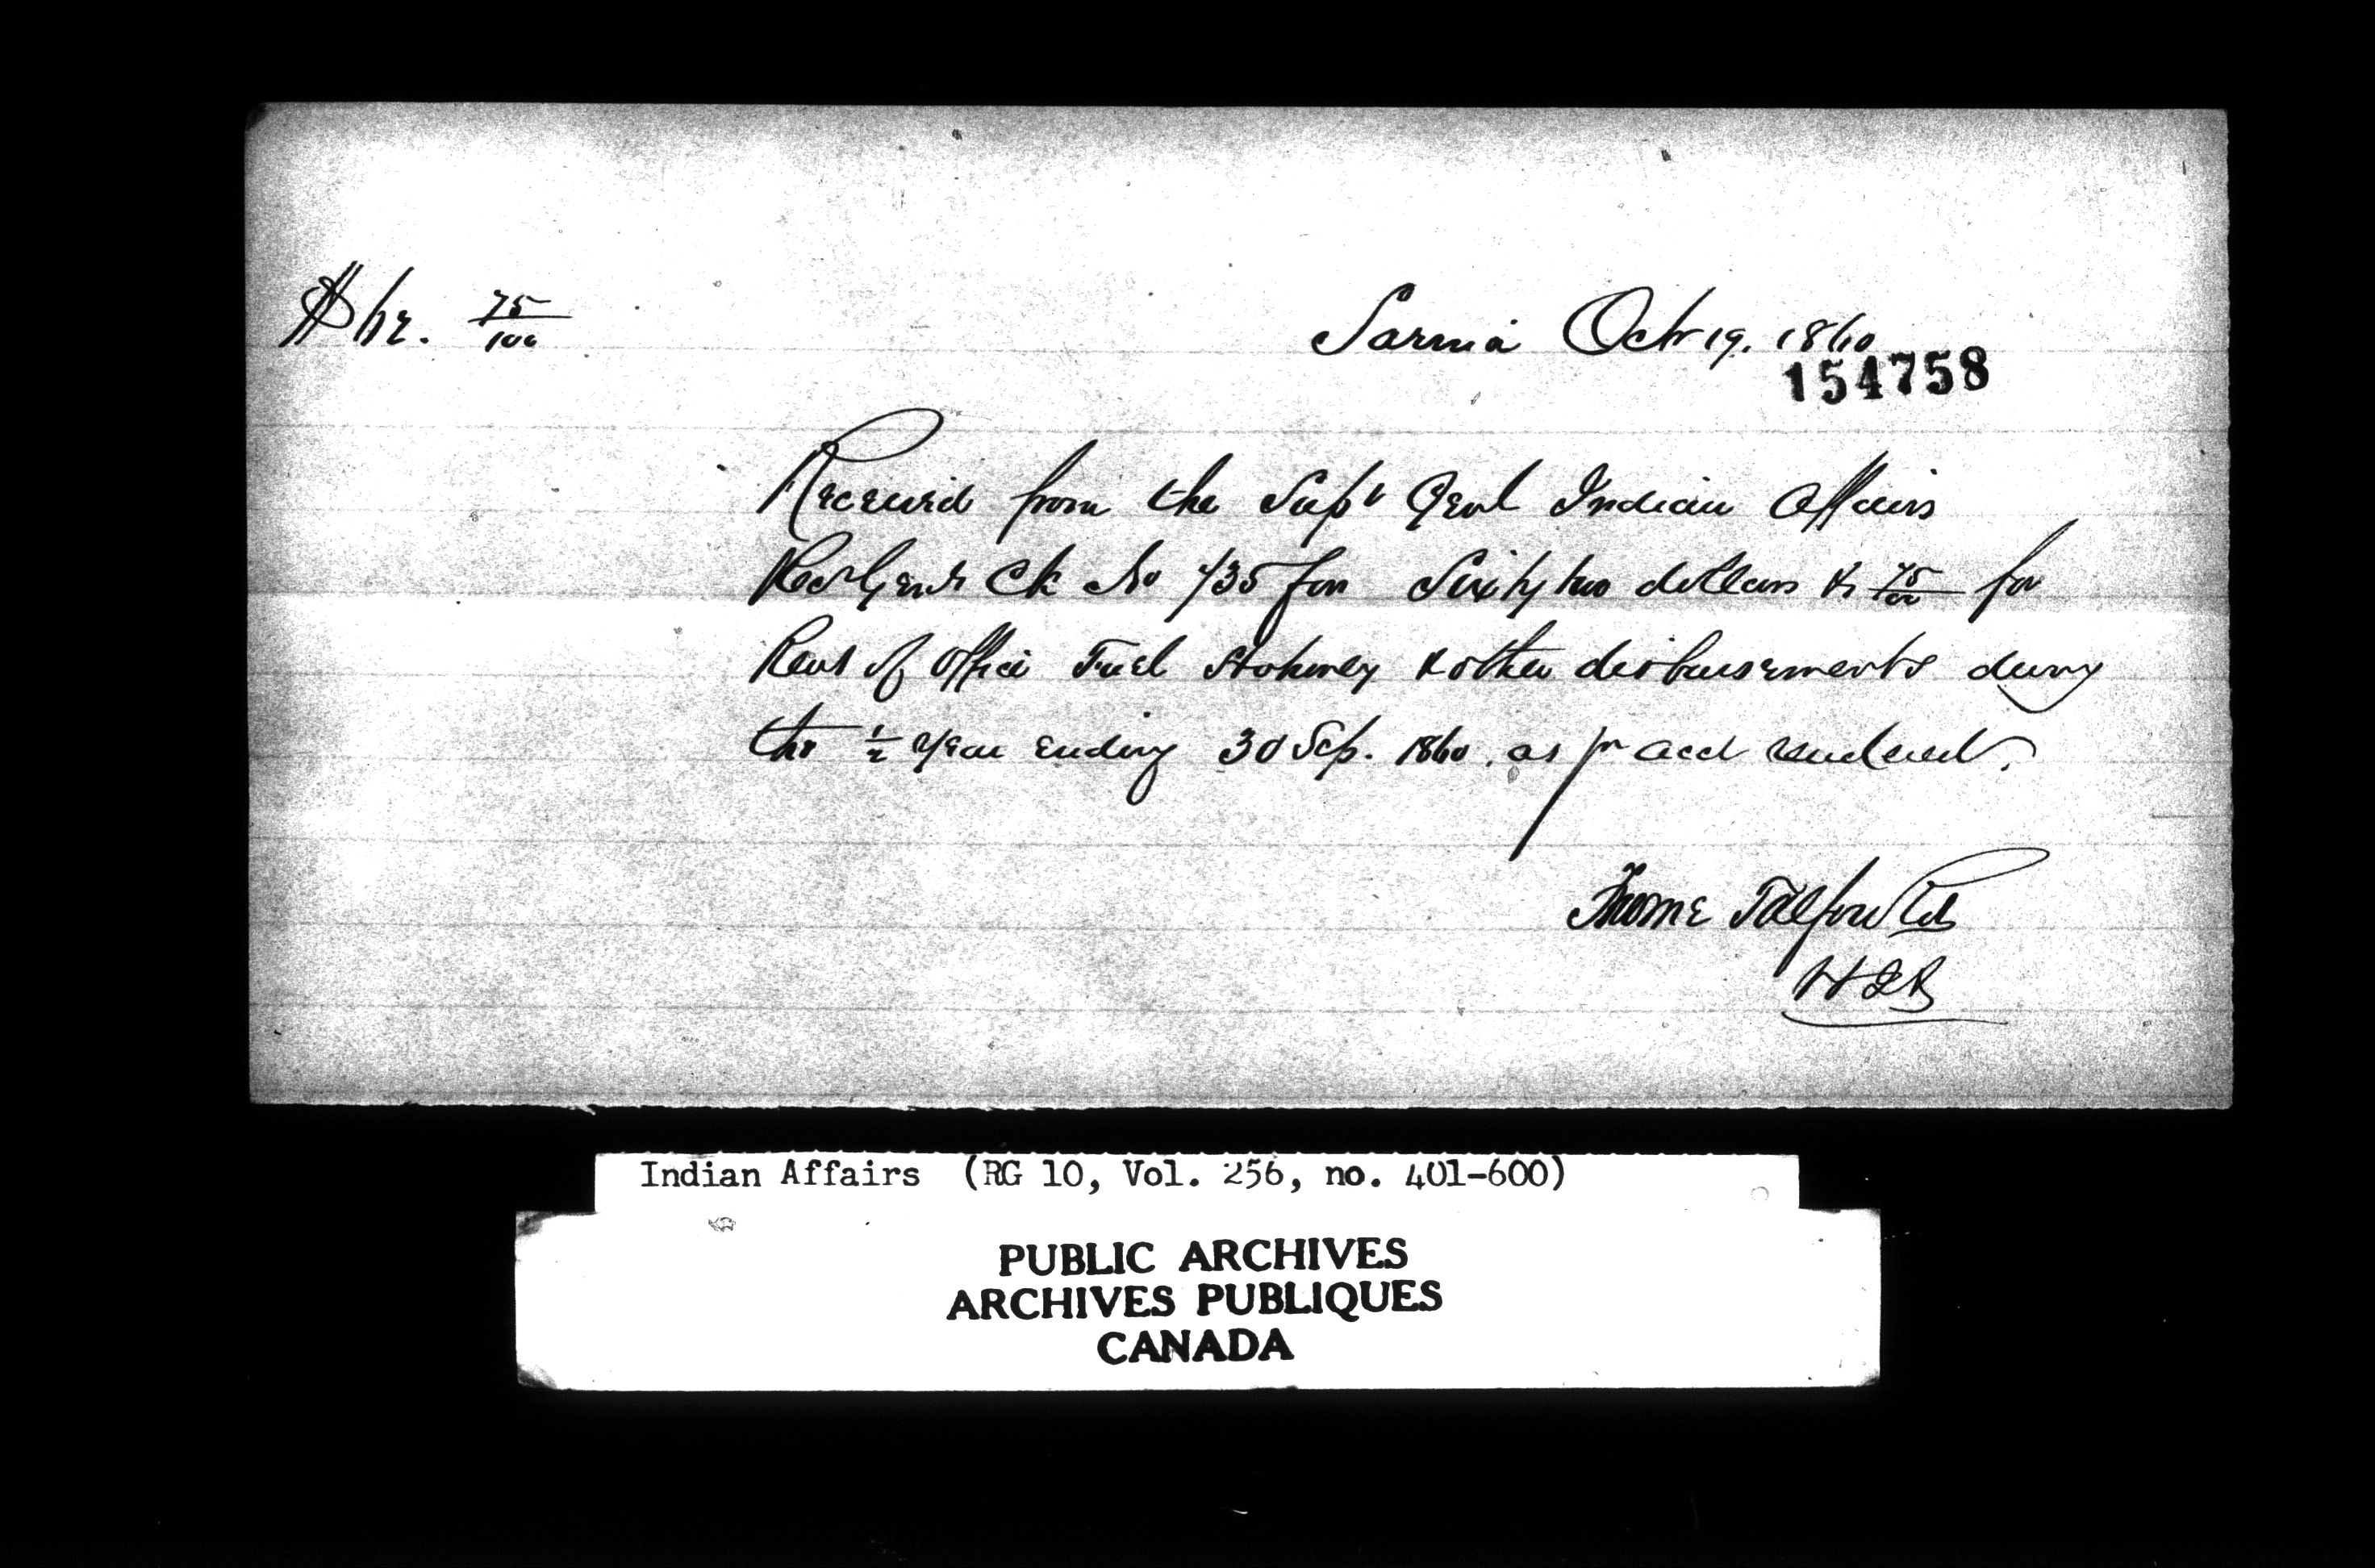 $62. 75/100
Sarnia Octr 19. 1860
154758
Received from the Supt Genl Indian Affairs
Rec Genls Ck No 735 for Sixty two dollars & 75/100 for
Rent of Office Fuel Stationery & other disbursements during
the 1/2 year ending 30 Sep. 1860. as pr acct rendered.
Froome Talfourd
Indian Affairs (RG 10, Vol. 256, no. 401-600)
PUBLIC ARCHIVES
ARCHIVES PUBLIQUES
CANADA